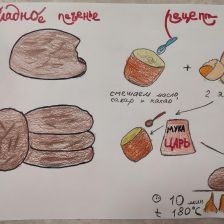 ладное печенье
рецепт
смешаем масло,
сахар и какао
2
МУКА
ЦАРЬ
10 мин
t 180°C